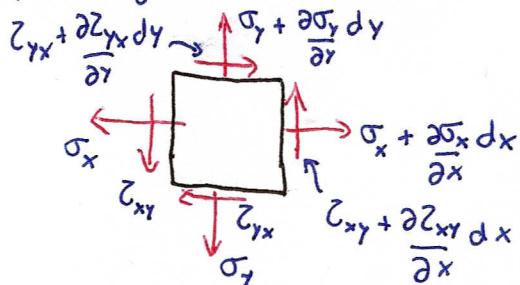 τyx + ∂τyx/∂y dy
σy + ∂σy/∂y dy
σx
σx + ∂σx/∂x dx
τxy
τyx
τxy + ∂τxy/∂x dx
σy